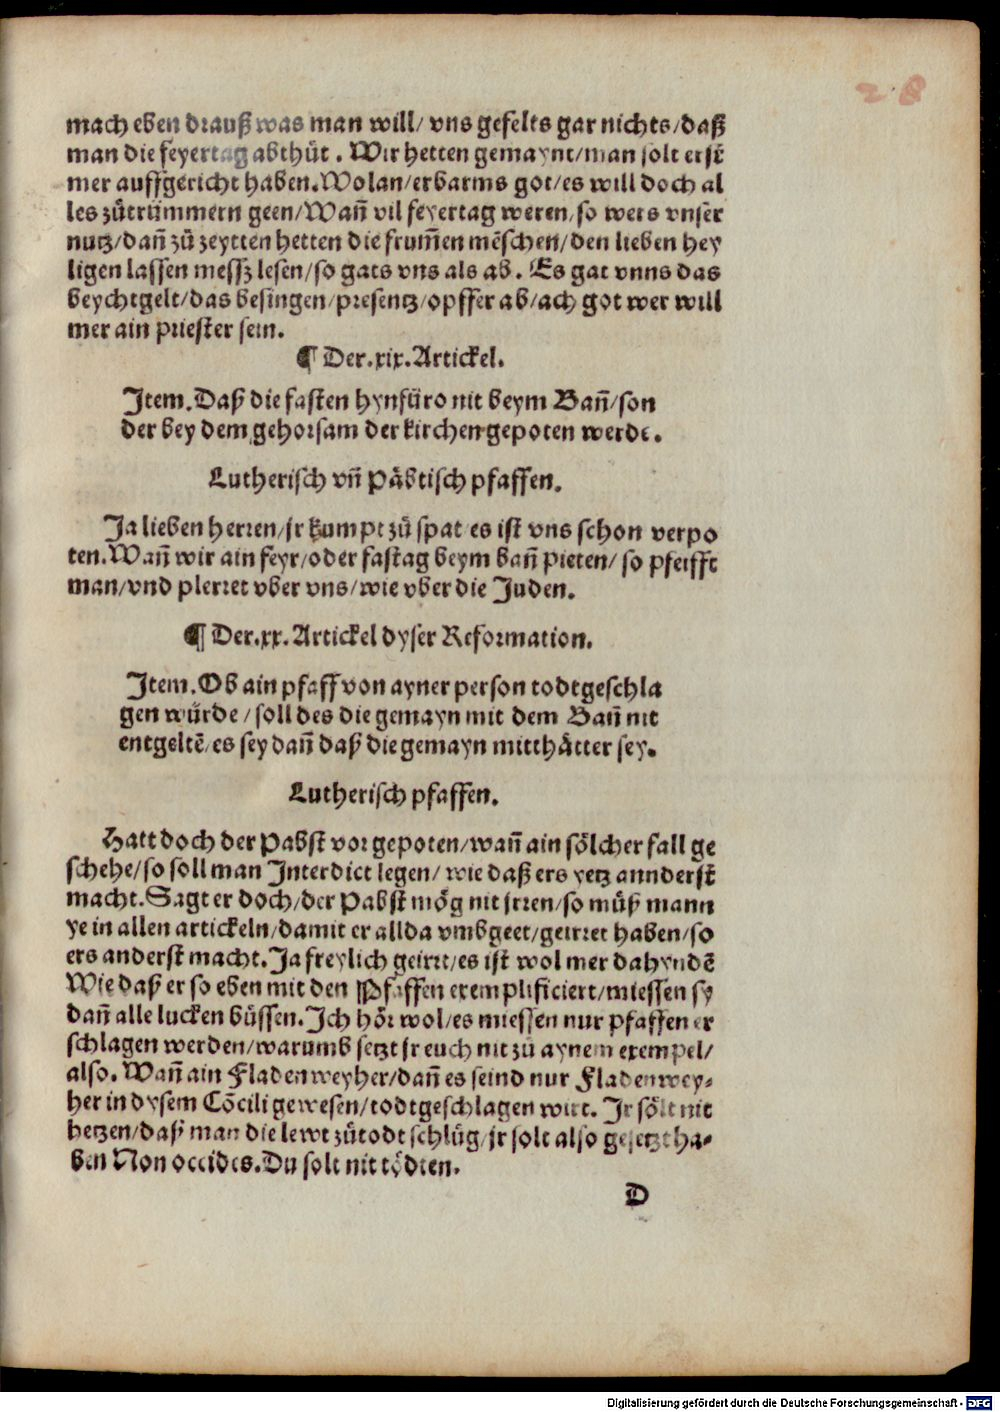 28
mach eben drauß was man will/ vns gefelts gar nichts/daß
man die feyertag abthüt . Wir hetten gemaynt/man solt erst
mer auffgericht haben.Wolan/erbarms got/es will doch al
les zůtrümmern geen/Wañ vil feyertag weren/so wers vnser
nutz/dañ zů zeytten hetten die frum̃en mēschen/den lieben hey
ligen lassen messz lesen/so gats vns als ab. Es gat vnns das
beychtgelt/das besingen/presentz/opffer ab/ach got wer will
mer ain priester sein.
¶ Der.xix.Artickel.
Item.Daß die fasten hynfüro nit beym Bañ/son
der bey dem gehorsam der kirchen gepoten werde.
Lutherisch vñ Päbtisch pfaffen.
Ja lieben herren/jr kumpt zů spat es ist vns schon verpo
ten.Wañ wir ain feyr/oder fastag beym bañ pieten/ so pfeifft
man/vnd plerret vber vns/wie vber die Juden.
¶ Der.xx.Artickel dyser Reformation.
Item.Ob ain pfaff von ayner person todtgeschla
gen würde/soll des die gemayn mit dem Bañ nit
entgeltē/es sey dañ daß die gemayn mitthätter sey.
Lutherisch pfaffen.
Hatt doch der Pabst vor gepoten/wañ ain sölcher fall ge
schehe/so soll man Interdict legen/ wie daß ers yetz annderst
macht.Sagt er doch/der Pabst mög nit jrren/so můß mann
ye in allen artickeln/damit er allda vmbgeet/geirret haben/so
ers anderst macht.Ja freylich geirrt/es ist wol mer dahyndē
Wie daß er so eben mit den Pfaffen exemplificiert/miessen sy
dañ alle lucken büssen.Ich hör wol/es miessen nur pfaffen er
schlagen werden/warumb setzt jr euch nit zů aynem exempel/
also. Wañ ain Fladenweyher/dañ es seind nur Fladenwey-
her in dysem Cōcili gewesen/todtgeschlagen wirt. Ir sölt nit
hetzen/daß man die lewt zůtodt schlůg/jr solt also gesetzt ha-
ben Non occides.Du solt nit tödten.
D
Digitalisierung gefördert durch die Deutsche Forschungsgemeinschaft - DFG